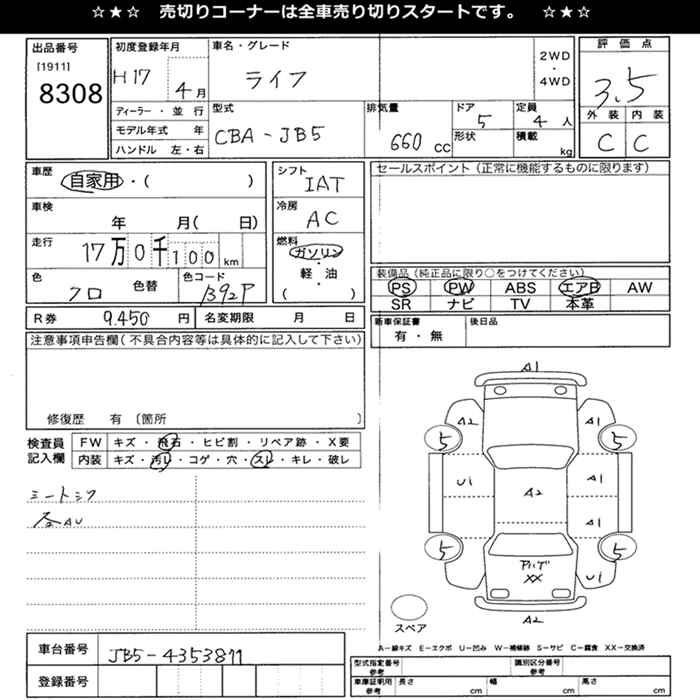 ☆★☆ 売切りコーナーは全車売り切りスタートです。 ☆★☆
出品番号
[1911]
8308
初度登録年月
H17 4月
車名・グレード
ライフ
2WD
・
4WD
評価点
3.5
ディーラー・並行
モデル年式 年
ハンドル 左・右
型式
CBA-JB5
排気量
660 CC
ドア
5
定員
4 人
形状
積載
kg
外装 内装
C C
車歴
自家用・( )
車検
年 月( 日)
走行
17万0千100km
色
クロ
色替
色コード
B92P
シフト
IAT
冷房
AC
燃料
ガソリン
・
軽・油
( )
セールスポイント(正常に機能するものに限ります)
装備品(純正品に限り○をつけてください)
PS PW ABS エアB AW
SR ナビ TV 本革
R券 9.450 円 名変期限 月 日
新車保証書
有・無
後日品
注意事項申告欄(不具合内容等は具体的に記入して下さい)
修復歴 有 〔箇所 〕
検査員
記入欄
FW キズ・飛石・ヒビ割・リペア跡・X要
内装 キズ・汚レ・コゲ・穴・スレ・キレ・破レ
各AU
A1
A2 A1
5 5
U1 A2 A1
A1
5 5
XX
U1
A2
スペア
A-線キズ E-エクボ U-凹み W-補修跡 S-サビ C-腐食 XX-交換済
車台番号
JB5-4353811
登録番号
型式指定番号
参考
識別区分番号
参考
車庫証明用
参考
長さ cm 幅 cm 高さ cm